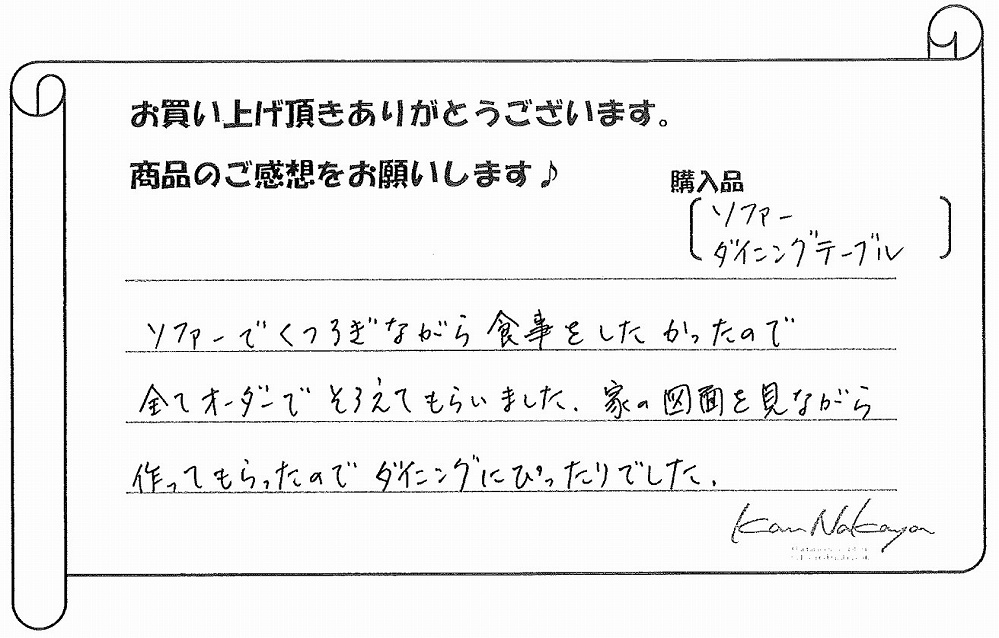 お買い上げ頂きありがとうございます。
商品のご感想をお願いします♪
購入品
ソファー
ダイニングテーブル
ソファーでくつろぎながら食事をしたかったので
全てオーダーでそろえてもらいました。家の図面を見ながら
作ってもらったのでダイニングにぴったりでした。
Kan Nakaya